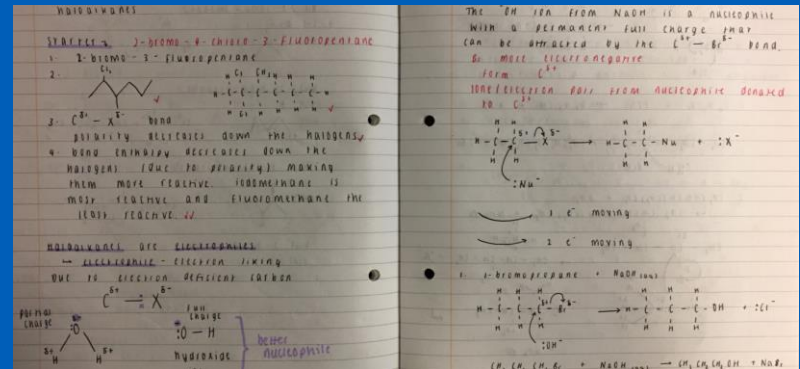 haloalkanes
starter: 2-bromo-4-chloro-3-fluoropentane
1. 2-bromo-3-fluoropentane
2.
3. Cδ+ – Xδ- bond
polarity decreases down the halogens
4. bond enthalpy decreases down the
halogens (due to polarity) making
them more reactive. iodomethane is
most reactive and fluoromethane the
least reactive
haloalkanes are electrophiles
↳ electrophile - electron liking
due to electron deficient carbon
Cδ+ – Xδ-
partial
charge
full
charge
:O – H
hydroxide
better
nucleophile
the -OH ion from NaOH is a nucleophile
with a permanent full charge that
can be attracted by the Cδ+ – Brδ- bond.
Br more electronegative
form Cδ+
lone/electron pair from nucleophile donated
to Cδ+
:Nu-
1 e- moving
2 e- moving
1. 1-bromopropane + NaOH (aq)
:OH-